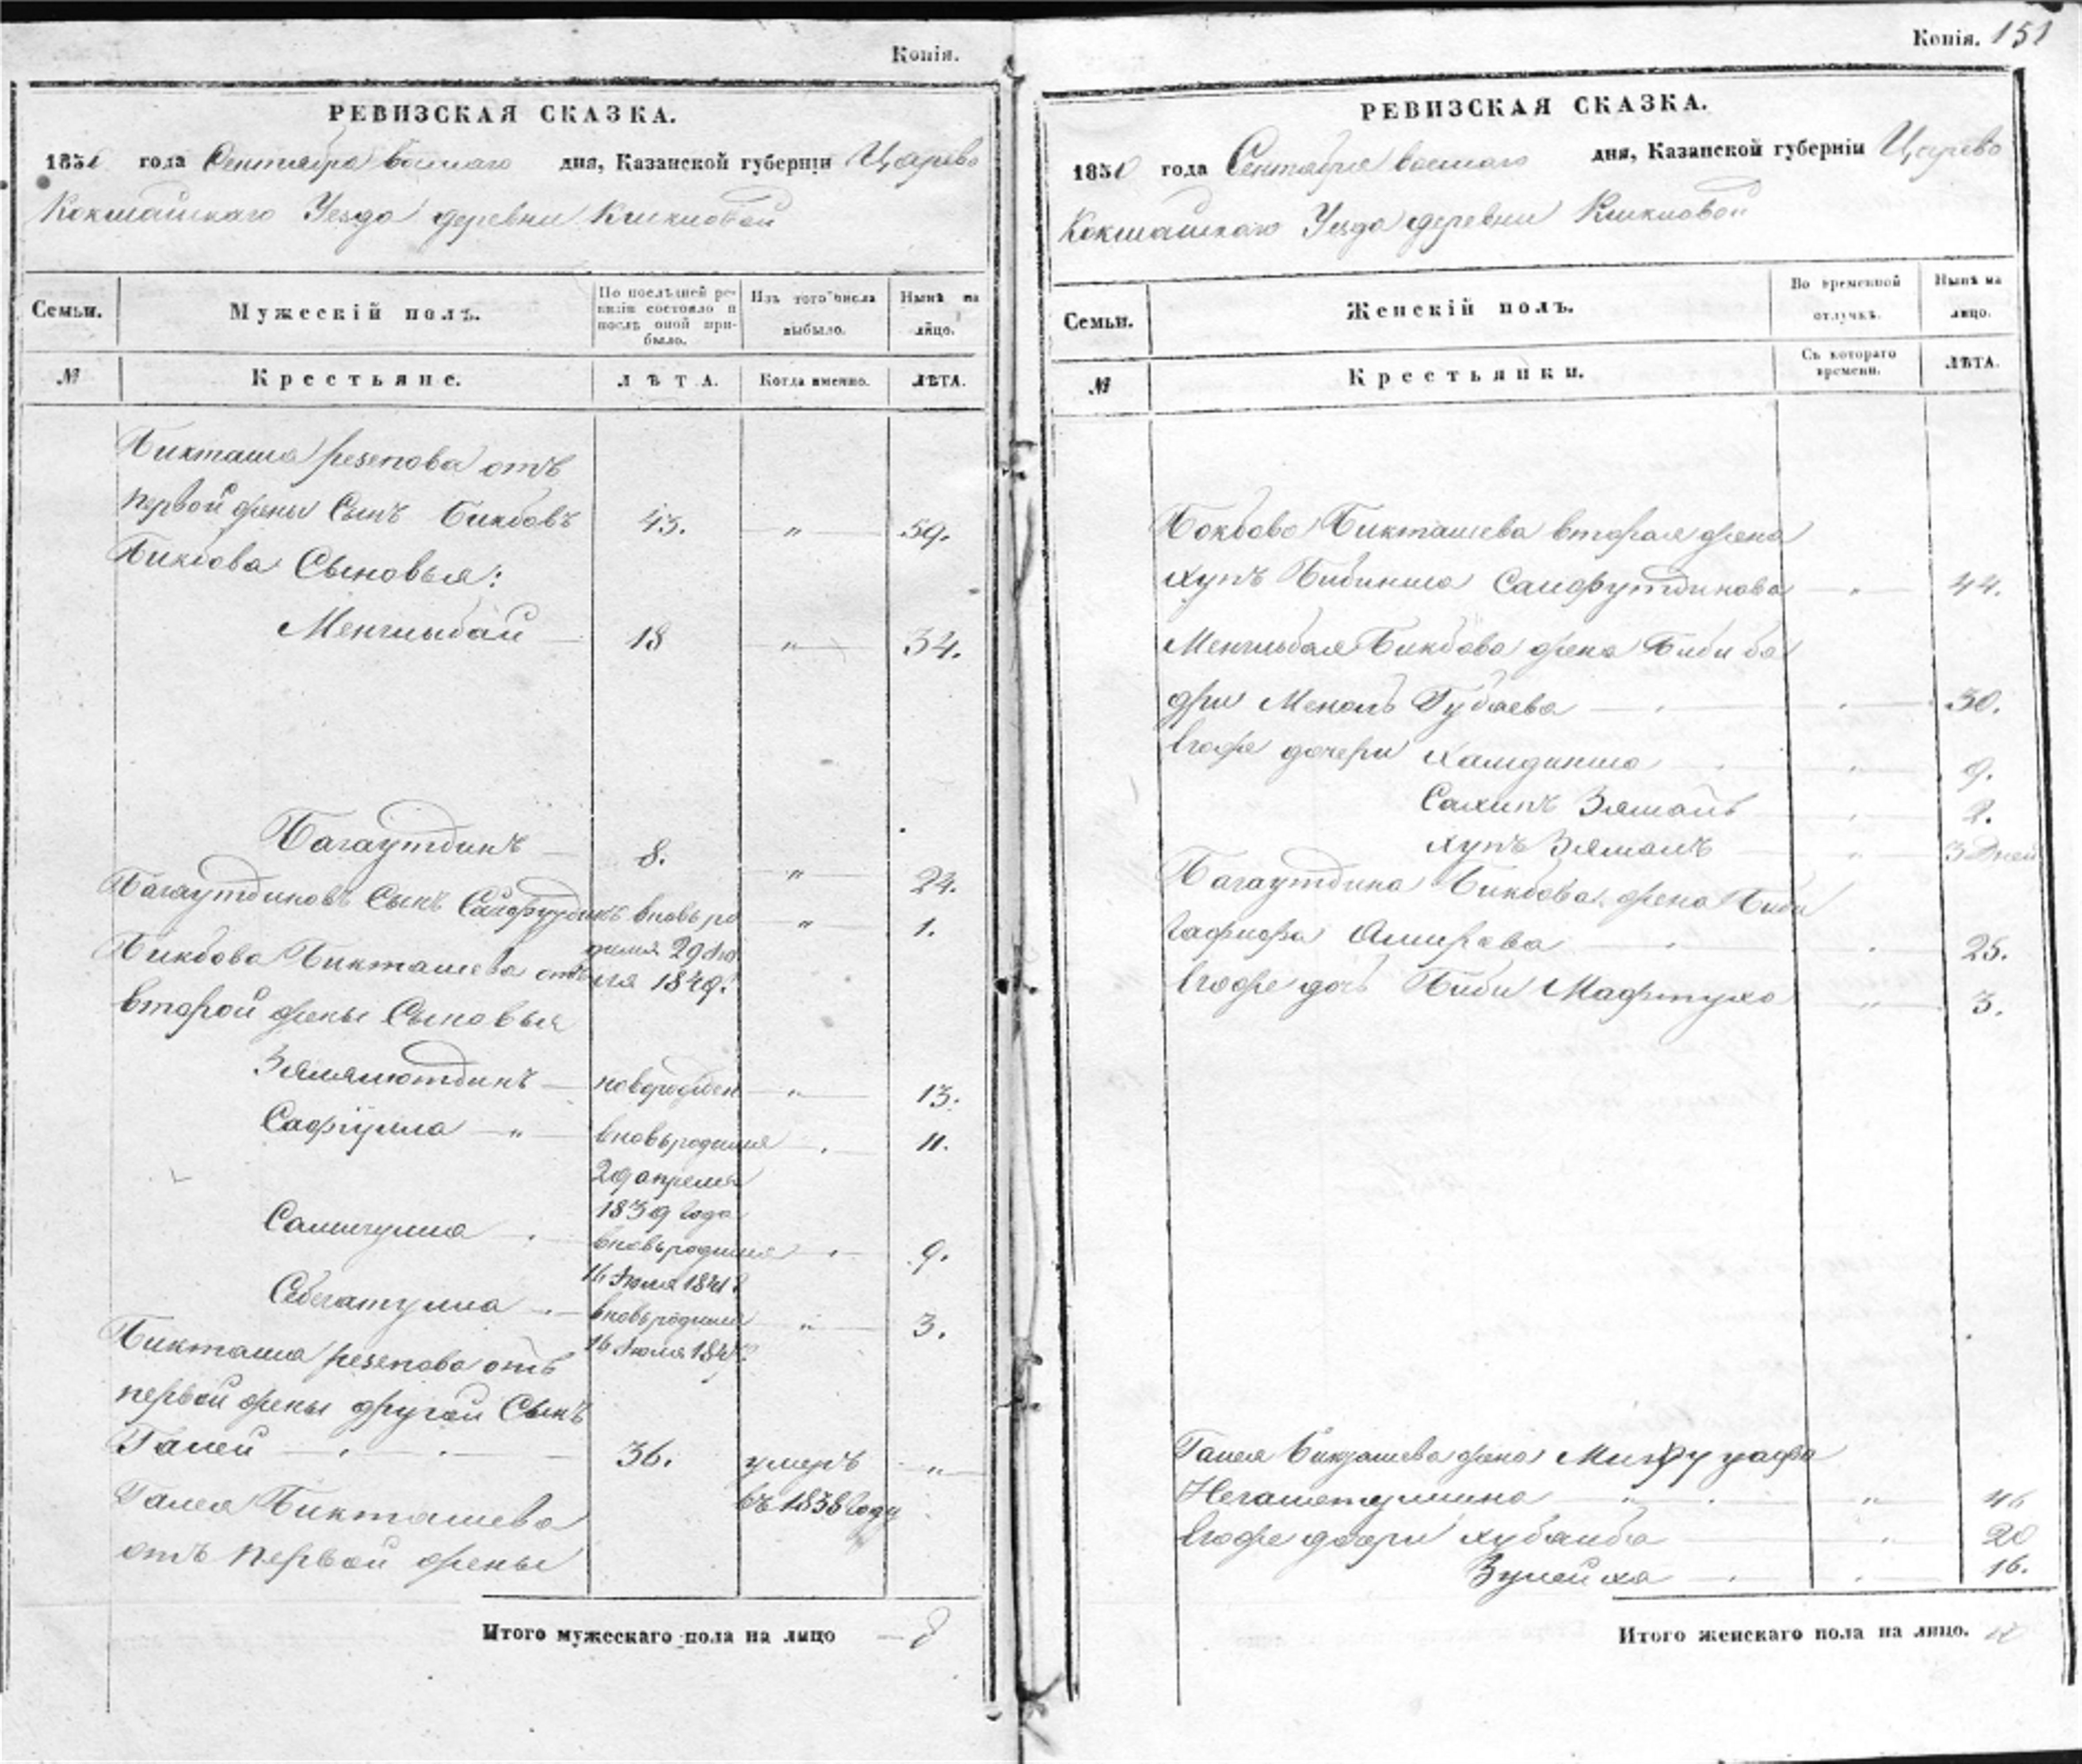 Копія.
РЕВИЗСКАЯ СКАЗКА.
1850 года Сентября восмаго дня, Казанской губерніи Царево
Кокшайскаго Уезда деревни Кшкловой
Семьи.
Мужескій полъ.
По послѣдней ре-
визіи состояло и
послѣ оной при-
было.
Изъ того числа
выбыло.
Нынѣ на
лицо.
№
Крестьяне.
ЛѢТА.
Когда именно.
ЛѢТА.
Бикташа отъ
первой жены Сынъ Бикбовъ 43. „ 59.
Бикбова Сыновья:
Менглыбай 18 „ 34.
Багаутдинъ 8. „ 24.
Багаутдиновъ Сынъ Сайфутдинъ вновь ро „ 1.
дился 29 Ию
ля 1849.
Бикбова Бикташева отъ
второй жены Сыновья
Зямлютдинъ новорожден „ 13.
Сафіулла „ вновьродился „ 11.
29 апреля
1839 года
вновьродился „ 9.
16 Июля 1841
Себегатулла вновьродился „ 3.
16 Июля
Бикташа отъ
первой жены другой Сынъ
Галей 36. умеръ „
въ 1838 году
Галея Бикташева
отъ первой жены
Итого мужескаго пола на лицо 8
Копія. 151
РЕВИЗСКАЯ СКАЗКА.
1850 года Сентября восмаго дня, Казанской губерніи Царево
Кокшайскаго Уезда деревни Кшкловой
Семьи.
Женскій полъ.
Во временной
отлучкѣ.
Нынѣ на
лицо.
№
Крестьянки.
Съ котораго
времени.
ЛѢТА.
Бокбова Бикташева вторая жена
Хупъ Бибинша Сайфутдинова „ 44.
Менглыбая Бикбова жена Биби ба
дри Губаева „ 30.
Ихже дочери Хамдинша „ 9.
Сахипъ Зямалъ „ 2.
Хупъ Зямалъ „ 3 дней
Багаутдина Бикбова жена Биби
Амирова „ 25.
Ихже дочь Биби Мафтуха „ 3.
Галея Бикташева жена
Негаметуллина „ 46
Ихже дочери Хубанба „ 20
Зулейха „ 16.
Итого женскаго пола на лицо.